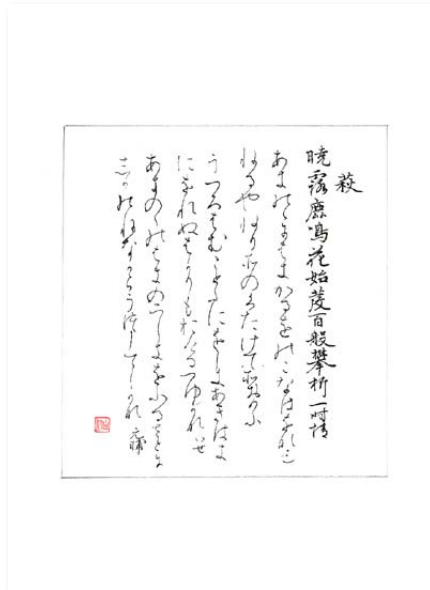 萩
暁露鹿鳴花始發百般攀折一時情
あきのゝにはきかるをのこなはをなみ
ねるやねりそのくたけてそおもふ
うつろはむことたにをしきあきはき
にをれぬはかりもおけるつゆかな
あきのゝのはきのにしきをふるさとに
しかのねなからうつしてしかな